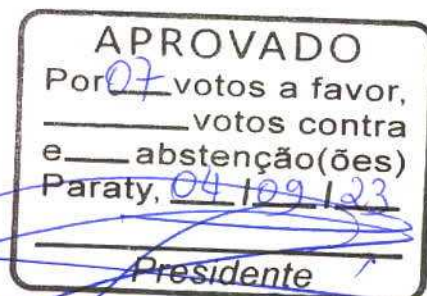 APROVADO
Por 07 votos a favor,
______ votos contra
e___ abstenção(ões)
Paraty, 04 / 09 / 23
Presidente